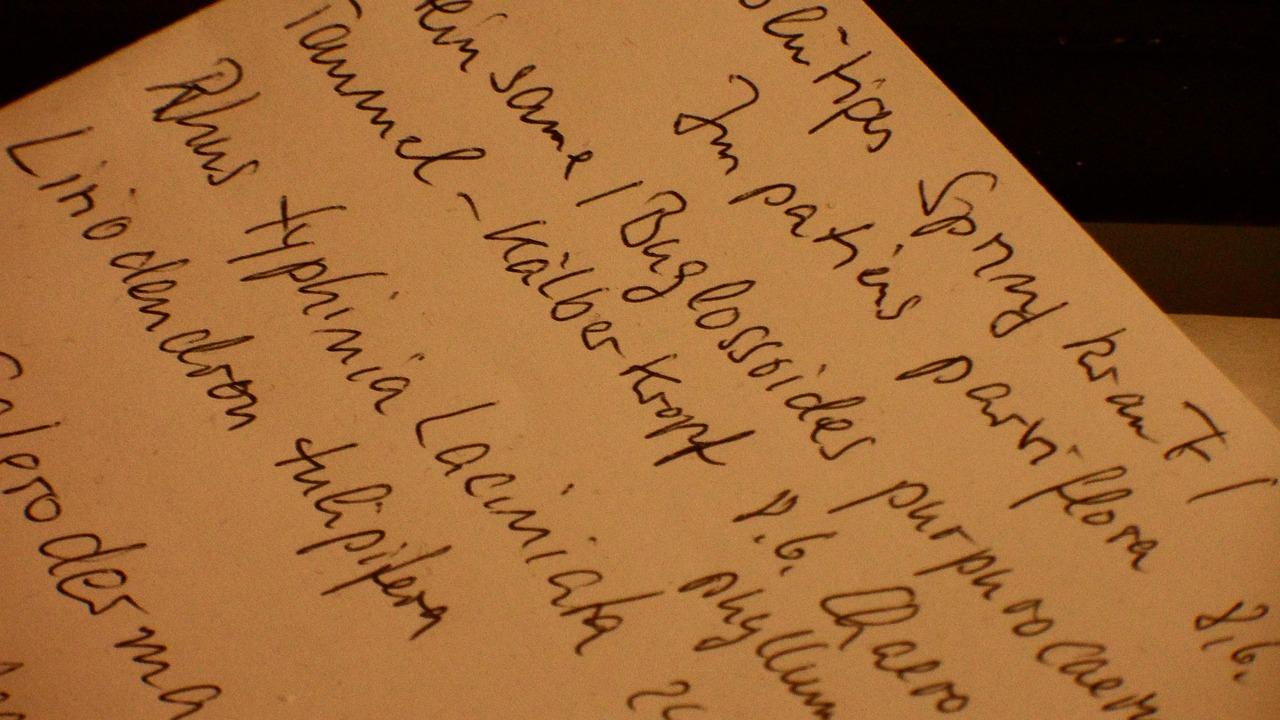 blütiges Springkraut /
Impatiens parviflora 8.6.
einsame / Buglossoides purpurocaer
Taumel-Kälberkropf 8.6. Chaero
phyllum
Rhus typhinia Laciniata
Liriodendron tulipifera
leroderma